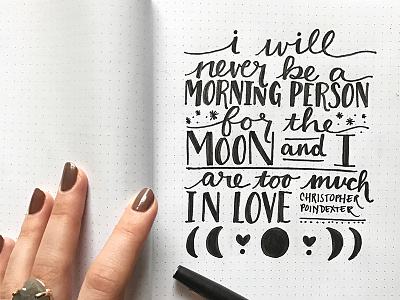 i will
never be a
MORNING PERSON
for the
MOON and I
are too much
IN LOVE CHRISTOPHER
POINDEXTER